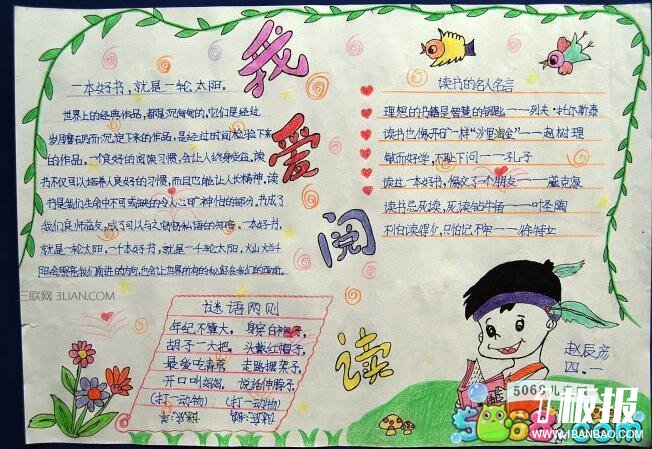 我爱阅读
一本好书，就是一轮太阳。
世界上的经典作品，都是沉甸甸的，它们是经过
岁月磨石乃而沉淀下来的作品，是经过时间检验下来
的作品。一个良好的阅读习惯，会让人终身受益。读
书不仅可以培养人良好的习惯，而且也能让人长精神，读
书是我们生命中不可或缺的令人心旷神怡的部分，书成了
我们良师益友，成了可以与之窃窃私语的知音。一本好书，
就是一轮太阳，千本好书，就是千轮太阳，火山火羊
阳会照亮我们前进的方向，也会让世界所有的秘密在我们的面前。
谜语两则
年纪不算大，身穿白袍子，
胡子一大把。头戴红帽子，
最爱吃青草 走路摆架子，
开口叫妈妈，说话伸脖子，
(打一动物) (打一动物)
读书的名人名言
理想的书籍是智慧的钥匙——列夫·托尔斯泰
读书也像开矿一样“沙里淘金”——赵树理
敏而好学，不耻下问——孔子
读过一本好书，像交了一个朋友——臧克家
读书忌死读，死读钻牛角——叶圣陶
——徐特立
赵辰彦
四.一
三联网 3LIAN.COM
5068儿
5068.com
1极报
WWW.1BANBAO.COM